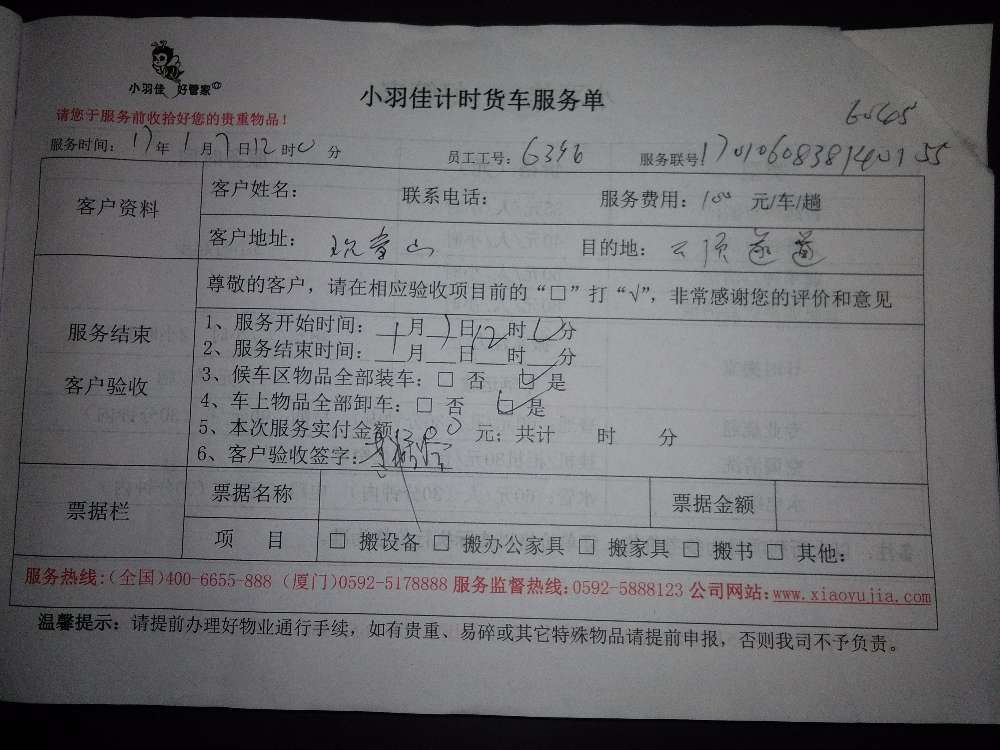 小羽佳 好管家
小羽佳计时货车服务单
请您于服务前收拾好您的贵重物品！
服务时间：17年1月7日12时0分 员工工号：6396 服务联号
客户资料
客户姓名： 联系电话： 服务费用：100 元/车/趟
客户地址： 山 目的地：云顶
服务结束
客户验收
尊敬的客户，请在相应验收项目前的“□”打“√”，非常感谢您的评价和意见
1、服务开始时间：1月7日12时0分
2、服务结束时间：___月___日___时___分
3、候车区物品全部装车：□ 否 ☑ 是
4、车上物品全部卸车：□ 否 ☑ 是
5、本次服务实付金额 元；共计 时 分
6、客户验收签字：
票据栏
票据名称 票据金额
项 目 □ 搬设备 □ 搬办公家具 □ 搬家具 □ 搬书 □ 其他：
服务热线：(全国)400-6655-888 (厦门)0592-5178888 服务监督热线：0592-5888123 公司网站：www.xiaoyujia.com
温馨提示：请提前办理好物业通行手续，如有贵重、易碎或其它特殊物品请提前申报，否则我司不予负责。